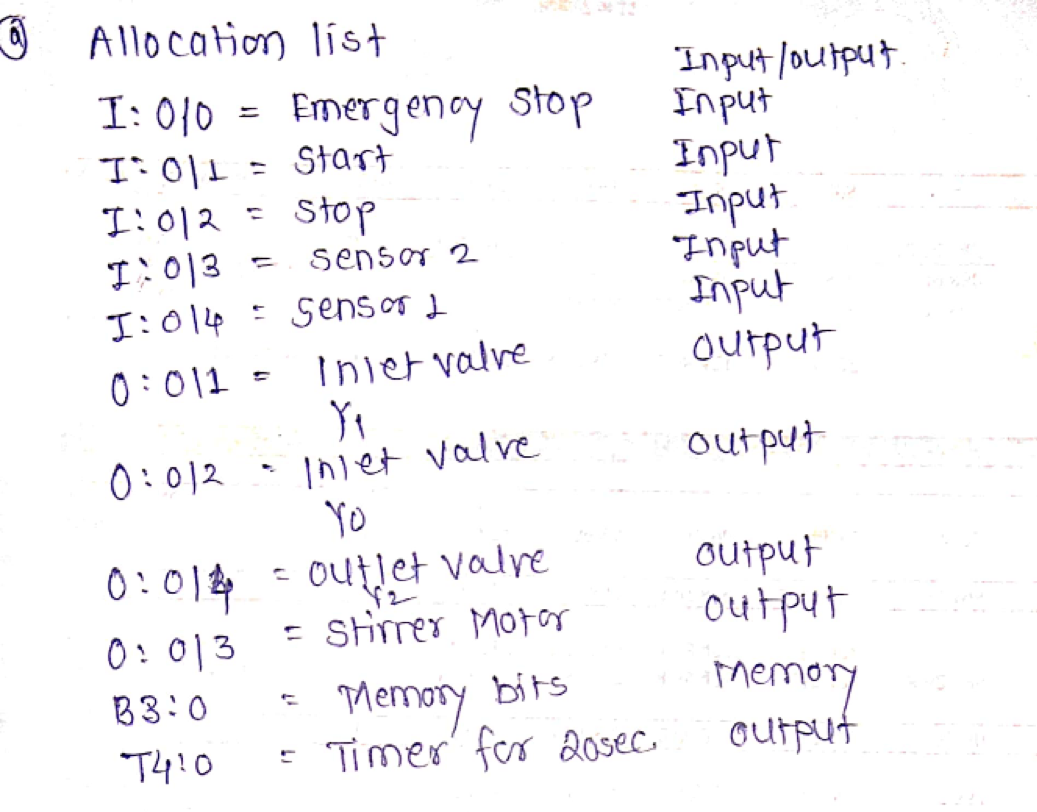 a) Allocation list
Input/output.
I:0/0 = Emergency Stop Input
I:0/1 = Start Input
I:0/2 = Stop Input
I:0/3 = sensor 2 Input
I:0/4 = sensor 1 Input
O:0/1 = Inlet valve output
Y1
O:0/2 = Inlet valve output
Y0
O:0/4 = outlet valve output
Y2
O:0/3 = Stirrer Motor output
B3:0 = Memory bits Memory
T4:0 = Timer for 20sec. output